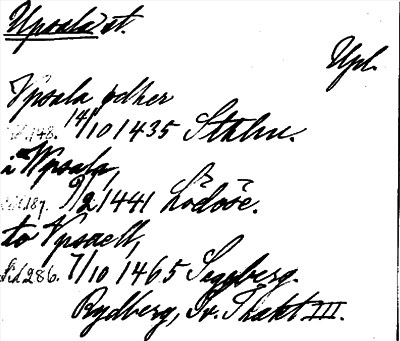 Upsala st.
Upl.
Vpsala oedher
Sid. 148. 14/10 1435 Sthlm.
i Wpsala,
Sid. 187. 9/2 1441 Lödöse.
to Vpsaell,
Sid. 286. 7/10 1465 Segeberg.
Rydberg, Sv. Trakt III.